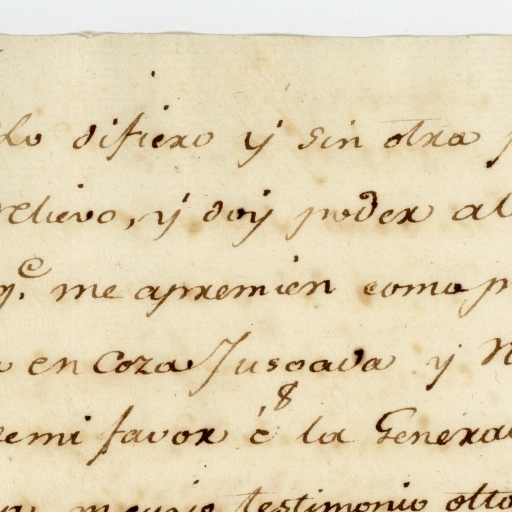 Lo difiero y sin otra
relievo, y doy poder al
q.e me apremien como p
en Coza Jusgada y
demi favor é la General
testimonio otto